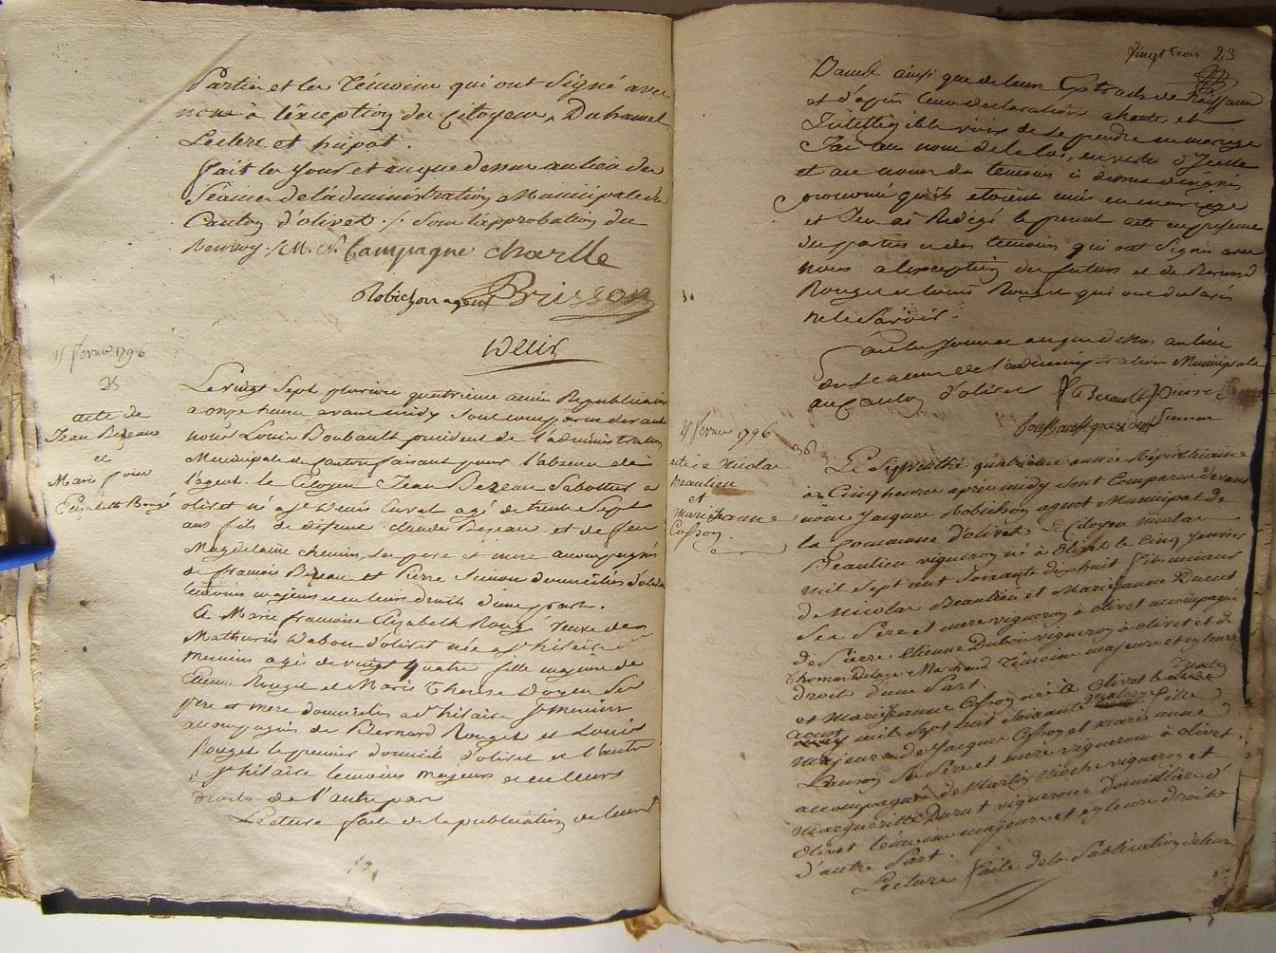 Parties et les témoins qui ont signé avec
nous à l'exception des citoyens Duhamel
Leclerc et pipot.
fait les jour et an que dessus au lieu des
séances de l'administration Municipale du
Canton d'olivet ./. sous l'approbation du
Renvoy ./. M. N. Campagne Charlle
Robichon agent Brisson
15 fevrier 1796
acte de
Jean Bezeau
et
Marie
Elizabeth Rougé
Le vingt Sept pluviose quatrieme année Republicaine
a onze heures avant midy Sont comparus devant
nous Louis Boubault président de l'administration
Municipale du canton faisant pour l'absence de
l'agent. le Citoyen Jean Bezeau Sabottier a
olivet né a St Denis Enval agé de trente Sept
ans fils de deffunt Claude Bezeau et de feu
Magdelaine chemin, ses pere et mere accompagnés
de francois Bezeau et Pierre Simon domiciliés d'olivet
temoins majeurs et en leurs droits d'une part.
& Marie francoise Elizabeth Rougé Veuve de
Mathurin Dabou d'olivet née a St hilaire St
Mesmin agé de vingt quatre fille majeure de
Rouget et Marie Therese Doyen ses
pere et mere domiciliés a St hilaire St mesmin
accompagnés de Bernard Rouget et Louis
Rouget le premier domicilié d'olivet et l'autre
a St hilaire temoins majeurs et en leurs
droits de l'autre part
Lecture faite de la publication de leurs
Vingt trois 23
Bans ainsi que de leurs Extraits de Naissance
et d'après leurs declarations a haute et
Intelligible voix de se prendre en mariage
J'ai au nom de la loi, en vertu d'Icelle
et au nom des temoins ci dessus désignés
prononcé qu'ils etoient unis en mariage
et J'en ai Redigé le present acte en presence
des parties et des temoins qui ont signé avec
nous a l'exception des futurs et de Bernard
Rouget et Louis Rouget qui ont declarés
ne le savoir.
fait les jour et an que dessus au lieu
des Seances de l'administration Municipale
au Canton d'olivet Pierre
Simon
15 fevrier 1796
36
acte de Nicolas
Beaulieu
et
marieanne
Cosson.
Le Sept quatrieme année Républicaine
à Cinq heures après midy sont Comparus devant
nous Jacques Robichon agent Municipal de
la Commune d'olivet le Citoyen Nicolas
Beaulieu vigneron né à olivet le cinq Janvier
mil sept cent soixante dix huit fils mineur
de Nicolas Beaulieu et Marieanne
ses Père et mere vigneron à olivet accompagné
de Pierre Etienne Dubois vigneron à olivet et de
Thomas Marchand Témoins majeurs et en leurs
droit d'une Part.
et Marieanne Cosson née à Olivet le
aoust mil sept cent soixante fille
majeure de Jacques Cosson et marie anne
ses Père et mere vignerons à olivet.
accompagnée de Martin vigneron et
Marguerite Durut vigneronne domiciliés d'
Olivet témoins majeurs et en leurs droits
d'autre Part.
Lecture faite de la Publication de leurs